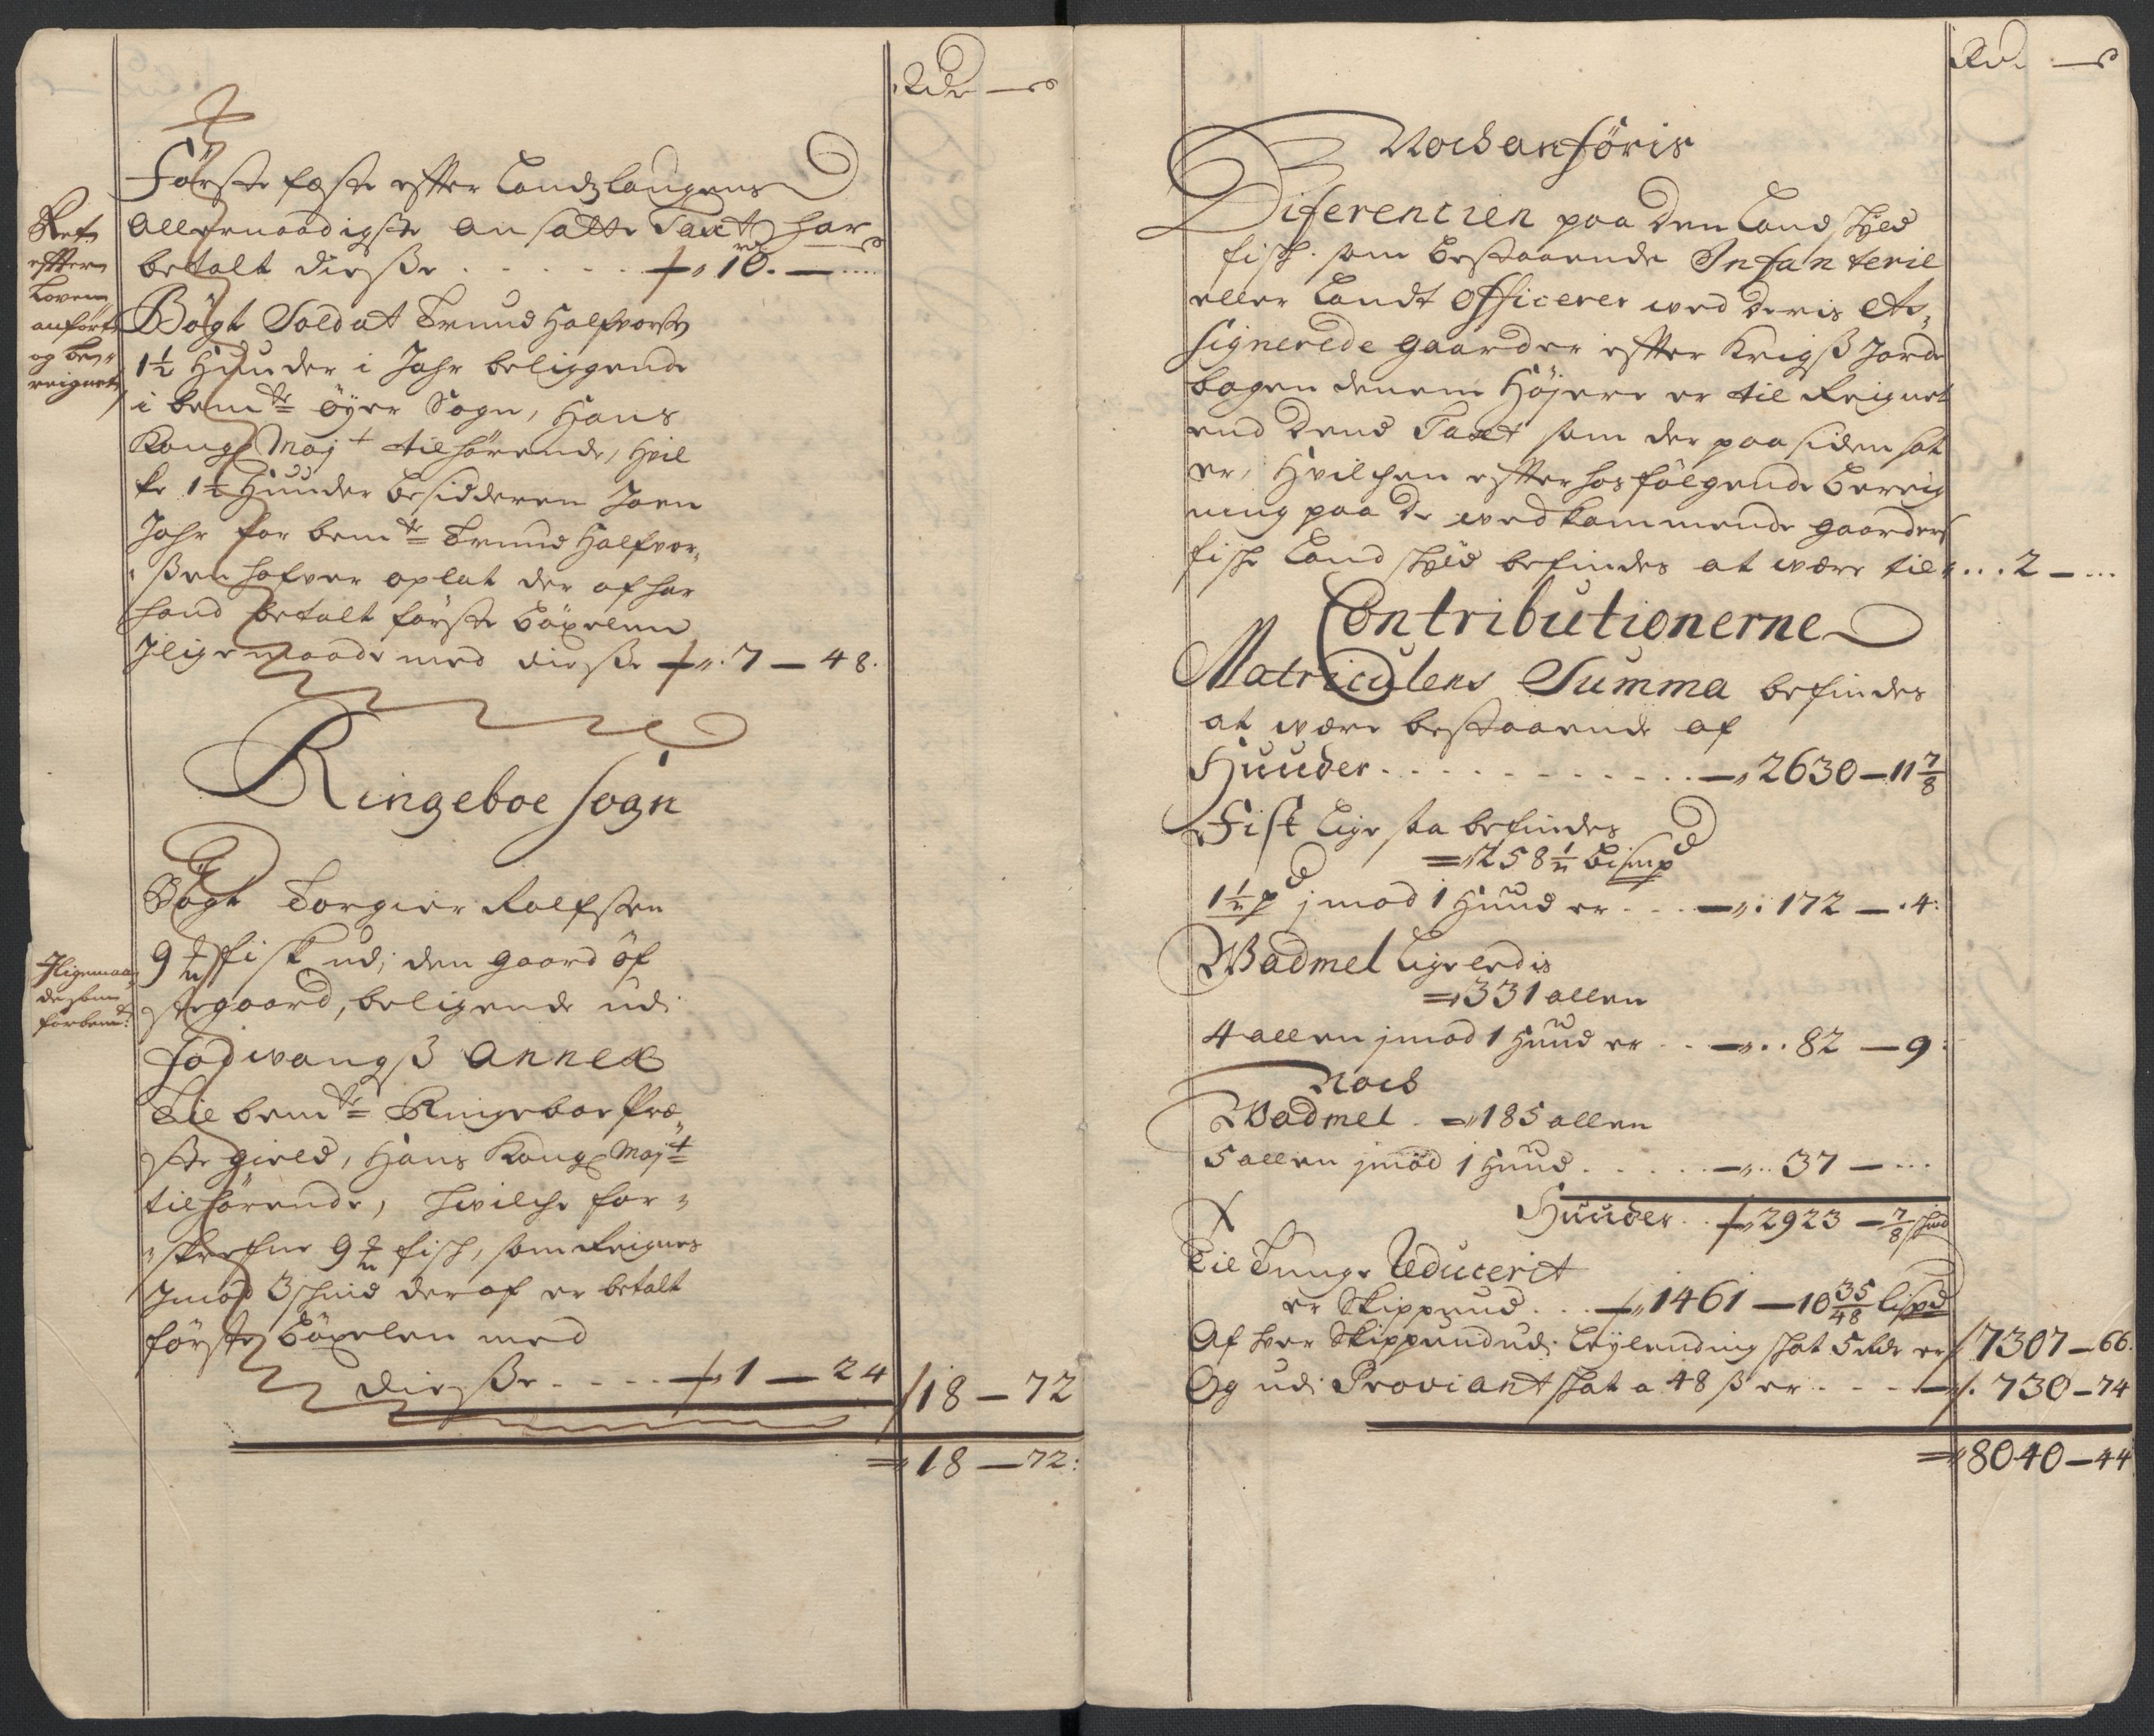 Rdr — s
Første fæste effter Landslaugens
Allernaadigste ansatte Taxt har
betalt diesse . . . . . . 10. — ....
Ret
effter
Loven
anført
og be-
reignet
Bögt Soldat Trund Halfvorss
1½ Huuder i Johr beliggende
i bemte öyer Sogn, Hans
Kong Majt tilhörende, hvil
ke 1½ Huuder besidderen Joen
Johr for bemte Trund Halfvor-
ssen hafver oplat der af har
hand betalt förste böxelen
Jligemaade med diesse 7 — 48.
Ringeboe Sogn
Bögt Torgier Rolfssen
9 ℔ fisk udj den gaard öf
stegaard, beligende udi
Jligemaa-
de som
forbemt:
Fodwangs Annex
Til bemte Ringeboe Præ-
ste gield, Hans Kong Majt
tilhörende, hvilche for-
skrefne 9 ℔ fisch, som Reignes
Jmod 3 schind deraf er betalt
förste böxelen med
diesse . . . . 1 — 24
18 — 72
18 — 72:
Rdr — s
Noch anföris
Diferencien paa den Landskyld
fisch som bestaaende Infanterie
eller Landt Officerer wed deris As-
signerede gaarder effter Krigs Jorde
bogen denem Höjere er til Reignet
end dend Taxt som der paa siden sat
er, Hvilchen effter hosfölgende bereig
ning paa de wedkommende gaarders
fisch Landskyld befindes at være til . . . 2 — ...
Contributionerne
Matriculens Summa befindes
at være bestaaende af
Huuder . . . . . . . . . . . . — 2630 — 11 7/8
Fisk Lige saa befindes
258½ bismpd
1½ pd jmod 1 Huud er . . . — 172 — 4:
Wadmel ligeledis
331 allen
4 allen jmod 1 Huud er . . — 82 — 9:
Noch
Wadmel . 185 allen
5 allen jmod 1 Huud . . . . . — 37 — ...
Huuder . . 2923 — 7/8 schind
Til Tunge Reducerit
er Skippund . . . 1461 — 10 35/48 Lispd
Af hver Skippund udi Leylending skat 5 Rdr er 7307 — 66.
Og udi Proviant skat a 48 s er . . . 730 — 74
8040 — 44